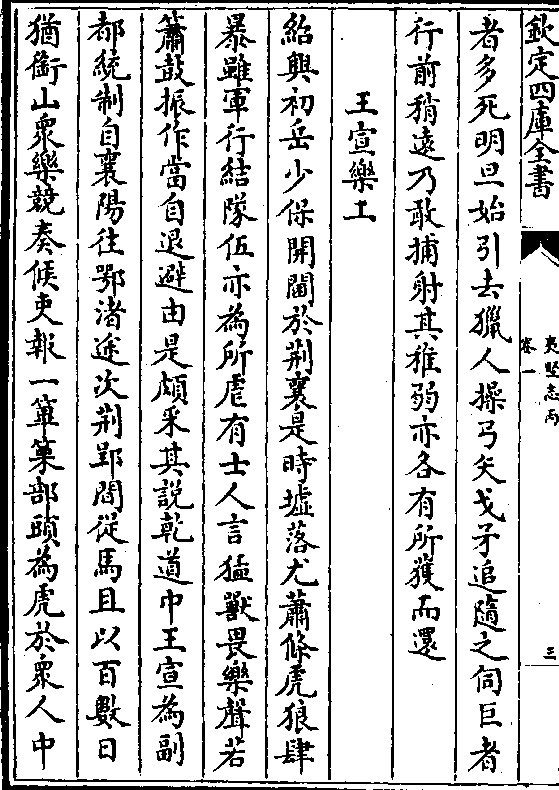 欽定四庫全書
夷堅志丙
卷一
三
者多死明旦始引去獵人操弓矢戈矛追隨之伺巨者
行前稍遠乃敢捕射其稚弱亦各有所獲而還
王宣樂工
紹興初岳少保開閫於荆襄是時墟落尤蕭條虎狼肆
暴雖軍行結隊伍亦為所虐有士人言猛獸畏樂聲若
簫鼓振作當自退避由是頗采其說乾道中王宣為副
都統制自襄陽往鄂渚途次荆郢間從馬且以百數日
猶銜山衆樂競奏候吏報一篳篥部頭為虎於衆人中